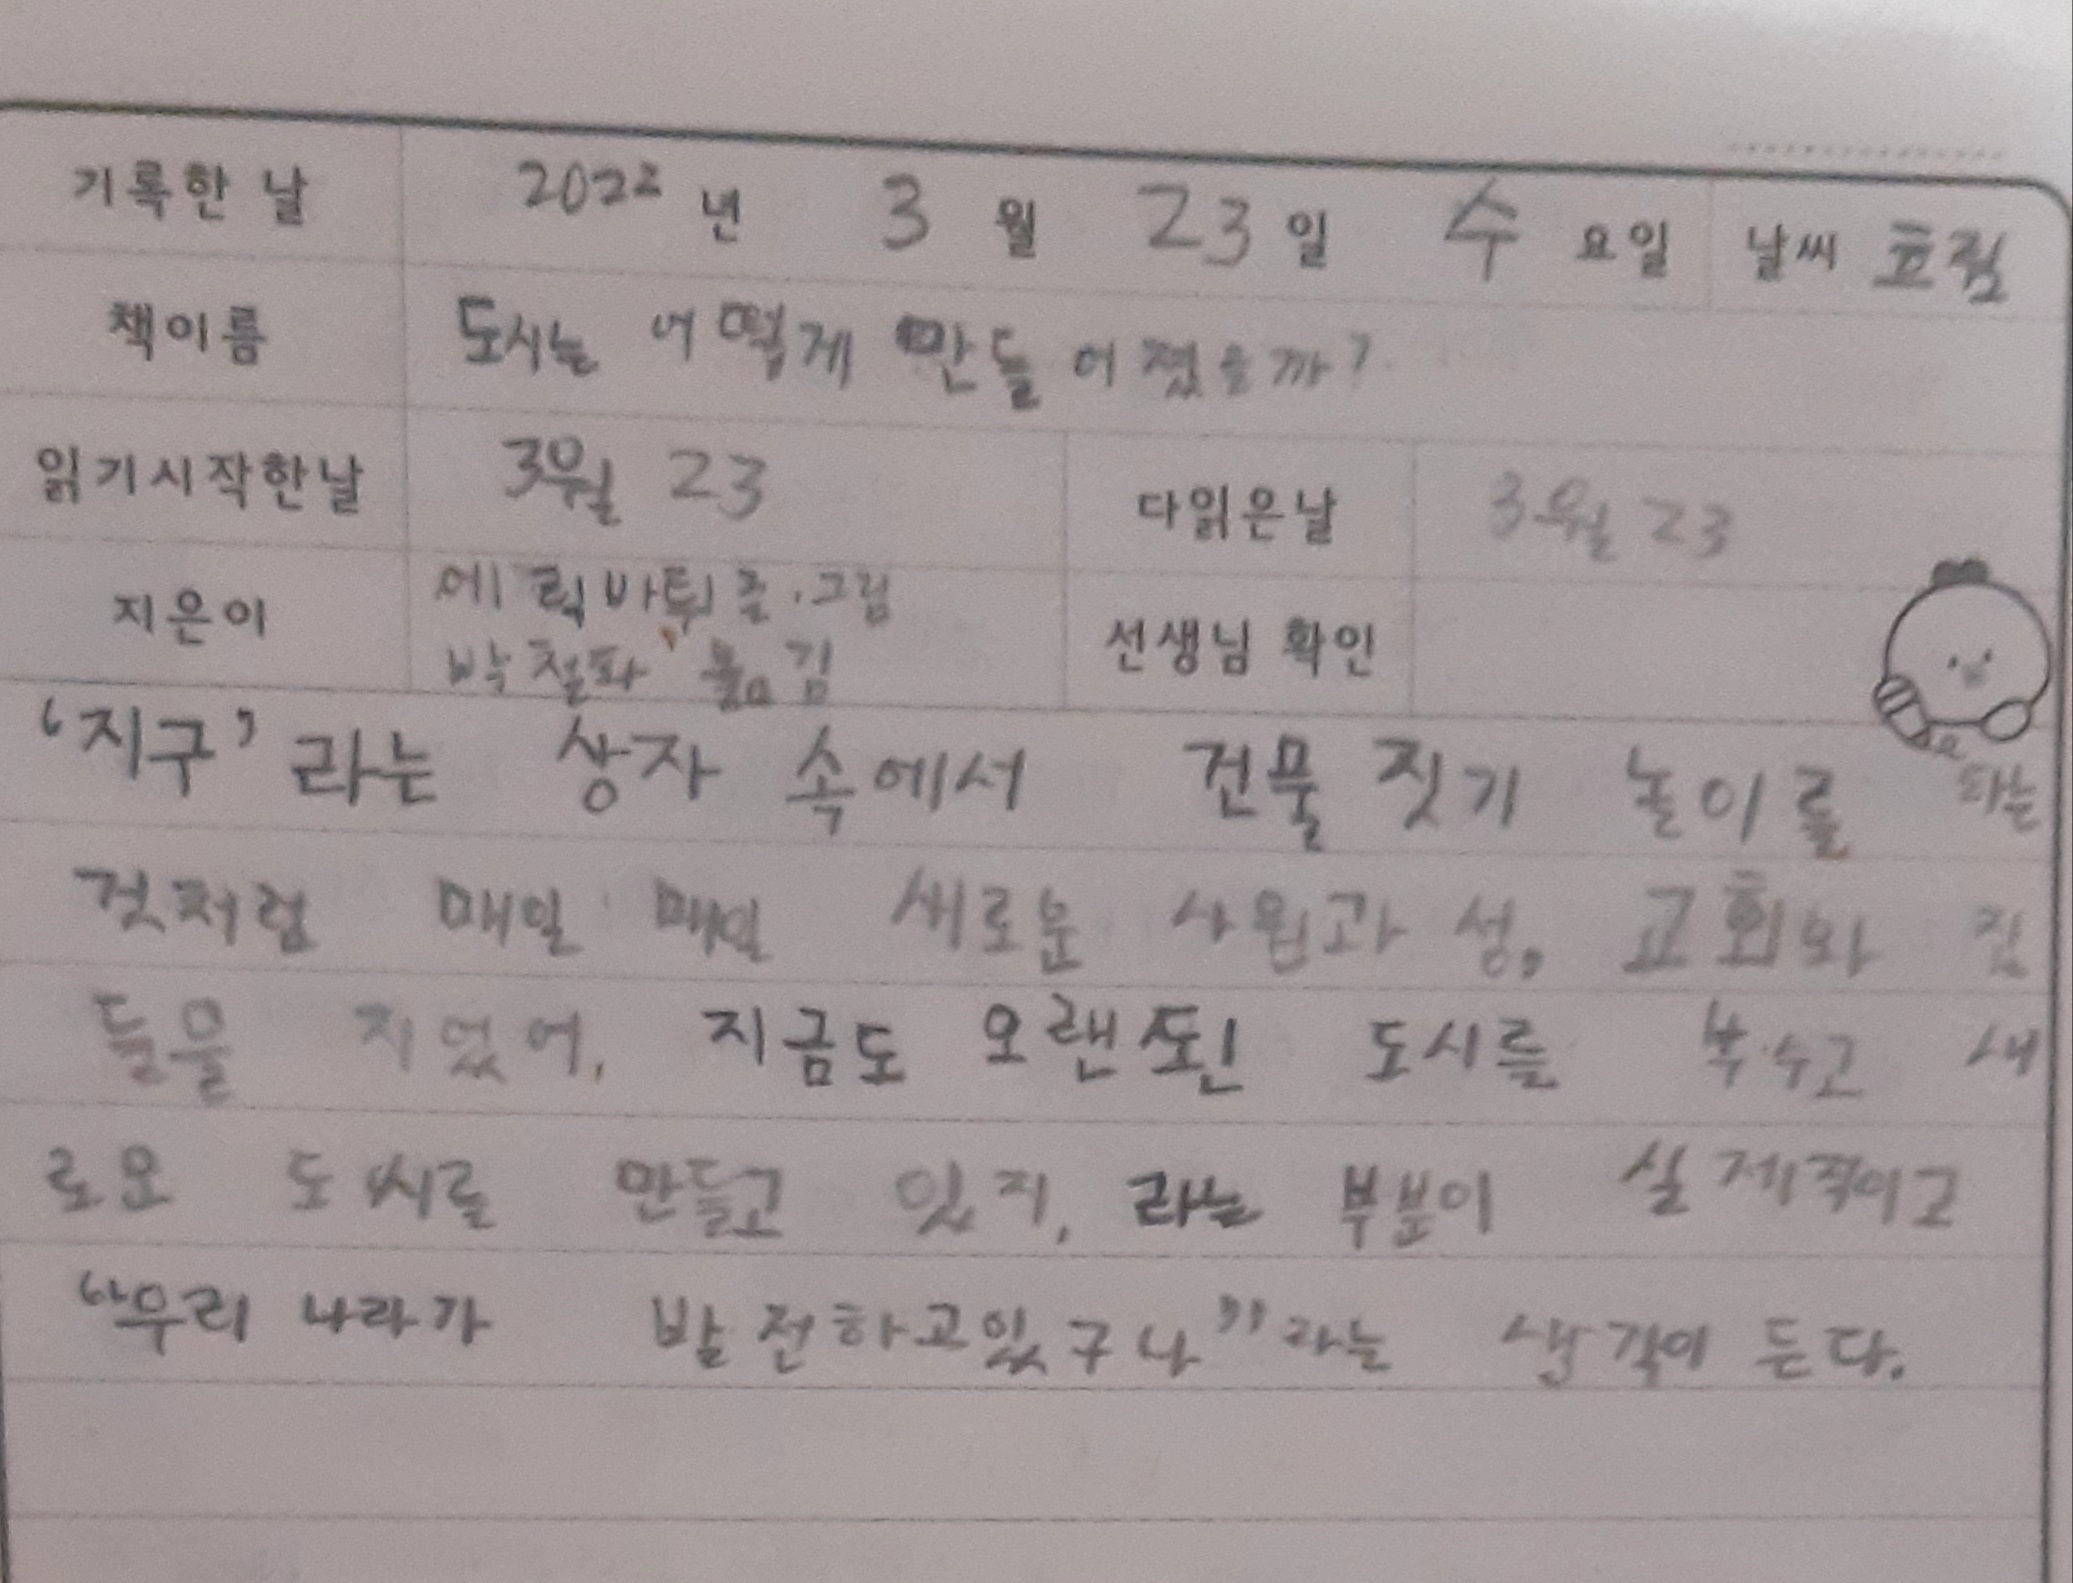 기록한 날 2022 년 3 월 23 일 수 요일 날씨 흐림
책이름 도시는 어떻게 만들어졌을까?
읽기시작한날 3월 23 다읽은날 3월 23
지은이 에릭바튀 글·그림 선생님 확인
박철화 옮김
'지구' 라는 상자 속에서 건물 짓기 놀이를 하는
것처럼 매일 매일 새로운 사원과 성, 교회와 집
들을 지었어. 지금도 오랜된 도시를 부수고 새
로운 도시를 만들고 있지. 라는 부분이 실제적이고
"우리 나라가 발전하고있구나" 라는 생각이 든다.